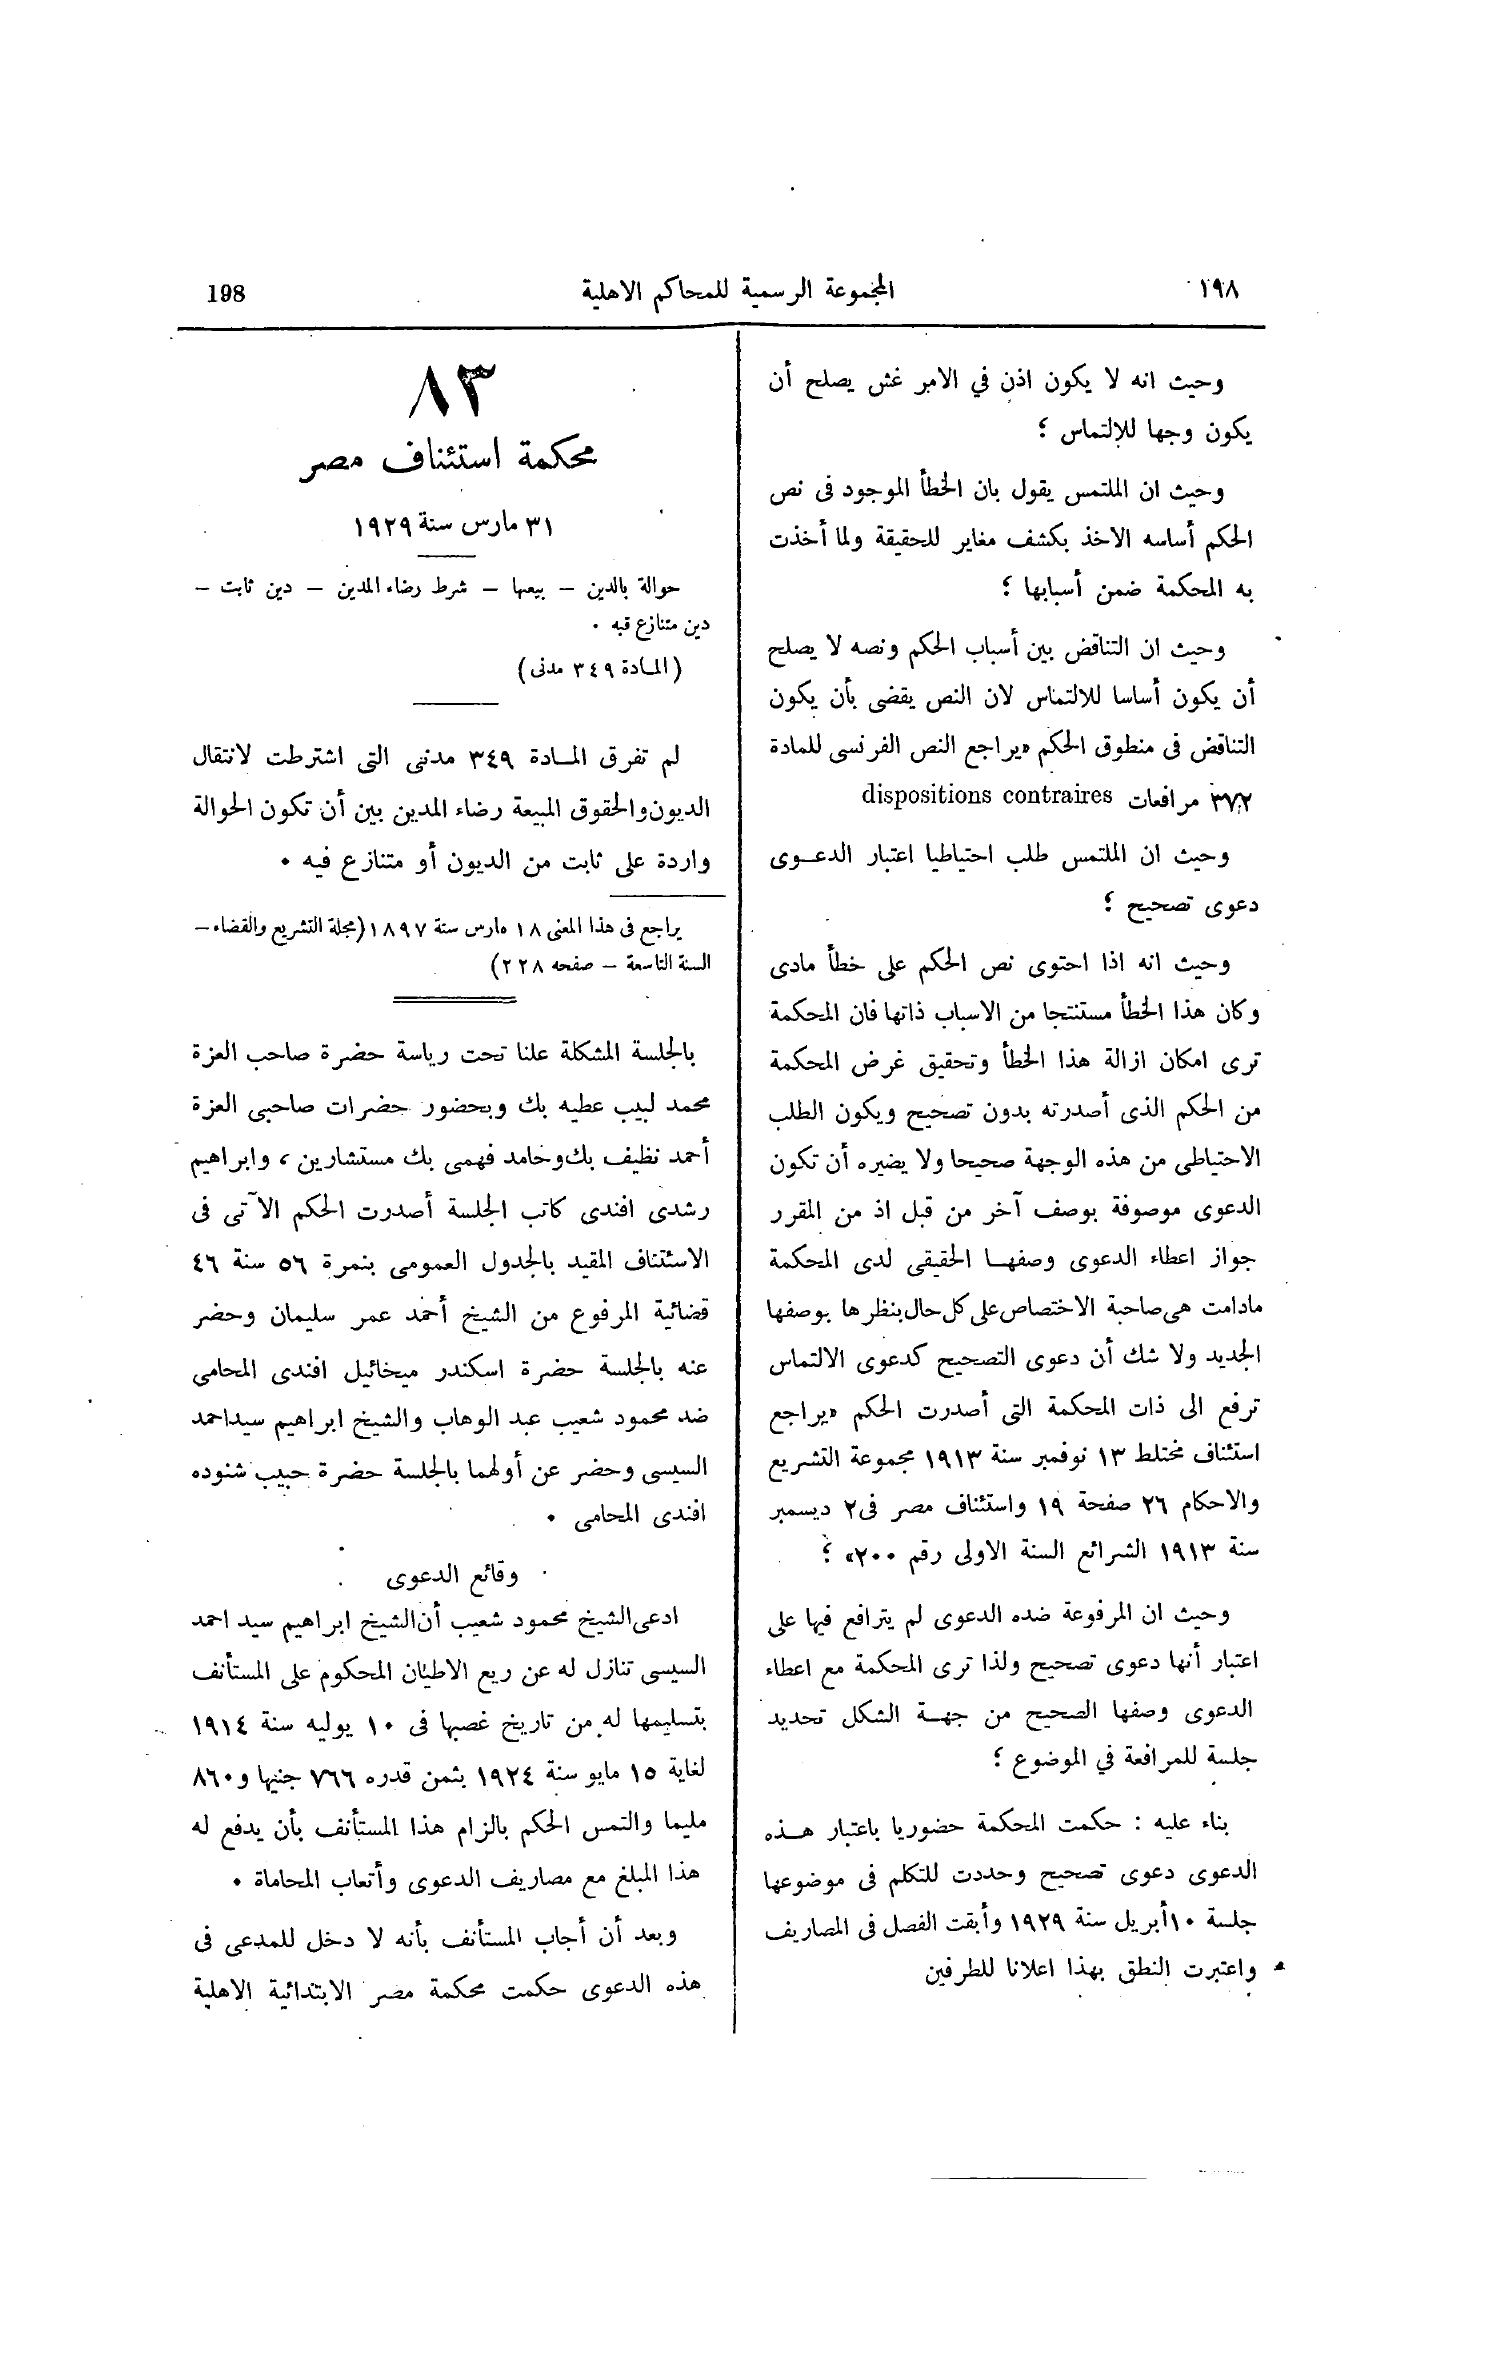 ١٩٨ المجموعة الرسمية للمحاكم الاهلية 198
وحيث انه لا يكون اذن في الامر غش يصلح أن
يكون وجها للإلتماس ؛
وحيث ان الملتمس يقول بان الخطأ الموجود فى نص
الحكم أساسه الاخذ بكشف مغاير للحقيقة ولما أخذت
به المحكمة ضمن أسبابها ؛
وحيث ان التناقض بين أسباب الحكم ونصه لا يصلح
أن يكون أساسا للالتماس لان النص يقضى بأن يكون
التناقض فى منطوق الحكم «يراجع النص الفرنسى للمادة
٣٧٢ مرافعات dispositions contraires
وحيث ان الملتمس طلب احتياطيا اعتبار الدعوى
دعوى تصحيح ؛
وحيث انه اذا احتوى نص الحكم على خطأ مادى
وكان هذا الخطأ مستنتجا من الاسباب ذاتها فان المحكمة
ترى امكان ازالة هذا الخطأ وتحقيق غرض المحكمة
من الحكم الذى أصدرته بدون تصحيح ويكون الطلب
الاحتياطى من هذه الوجهة صحيحا ولا يضيره أن تكون
الدعوى موصوفة بوصف آخر من قبل اذ من المقرر
جواز اعطاء الدعوى وصفها الحقيقى لدى المحكمة
مادامت هى صاحبة الاختصاص على كل حال بنظرها بوصفها
الجديد ولا شك أن دعوى التصحيح كدعوى الالتماس
ترفع الى ذات المحكمة التى أصدرت الحكم «يراجع
استئناف مختلط ١٣ نوفمبر سنة ١٩١٣ مجموعة التشريع
والاحكام ٢٦ صفحة ١٩ واستئناف مصر فى ٢ ديسمبر
سنة ١٩١٣ الشرائع السنة الاولى رقم ٢٠٠» ؛
وحيث ان المرفوعة ضده الدعوى لم يترافع فيها على
اعتبار أنها دعوى تصحيح ولذا ترى المحكمة مع اعطاء
الدعوى وصفها الصحيح من جهة الشكل تحديد
جلسة للمرافعة في الموضوع ؛
بناء عليه : حكمت المحكمة حضوريا باعتبار هذه
الدعوى دعوى تصحيح وحددت للتكلم فى موضوعها
جلسة ١٠ أبريل سنة ١٩٢٩ وأبقت الفصل فى المصاريف
واعتبرت النطق بهذا اعلانا للطرفين
٨٣
محكمة استئناف مصر
٣١ مارس سنة ١٩٢٩
حوالة بالدين – بيعها – شرط رضاء المدين – دين ثابت –
دين متنازع فيه .
(المادة ٣٤٩ مدنى)
لم تفرق المادة ٣٤٩ مدنى التى اشترطت لانتقال
الديون والحقوق المبيعة رضاء المدين بين أن تكون الحوالة
واردة على ثابت من الديون أو متنازع فيه .
يراجع فى هذا المعنى ١٨ مارس سنة ١٨٩٧ (مجلة التشريع والقضاء –
السنة التاسعة – صفحه ٢٢٨)
بالجلسة المشكلة علنا تحت رياسة حضرة صاحب العزة
محمد لبيب عطيه بك وبحضور حضرات صاحبى العزة
أحمد نظيف بك وحامد فهمى بك مستشارين ، وابراهيم
رشدى افندى كاتب الجلسة أصدرت الحكم الآتى فى
الاستئناف المقيد بالجدول العمومى بنمرة ٥٦ سنة ٤٦
قضائية المرفوع من الشيخ أحمد عمر سليمان وحضر
عنه بالجلسة حضرة اسكندر ميخائيل افندى المحامى
ضد محمود شعيب عبد الوهاب والشيخ ابراهيم سيد احمد
السيسى وحضر عن أولهما بالجلسة حضرة حبيب شنوده
افندى المحامى .
وقائع الدعوى
ادعى الشيخ محمود شعيب أن الشيخ ابراهيم سيد احمد
السيسى تنازل له عن ريع الاطيان المحكوم على المستأنف
بتسليمها له من تاريخ غصبها فى ١٠ يوليه سنة ١٩١٤
لغاية ١٥ مايو سنة ١٩٢٤ بثمن قدره ٧٦٦ جنيها و ٨٦٠
مليما والتمس الحكم بالزام هذا المستأنف بأن يدفع له
هذا المبلغ مع مصاريف الدعوى وأتعاب المحاماة .
وبعد أن أجاب المستأنف بأنه لا دخل للمدعى فى
هذه الدعوى حكمت محكمة مصر الابتدائية الاهلية